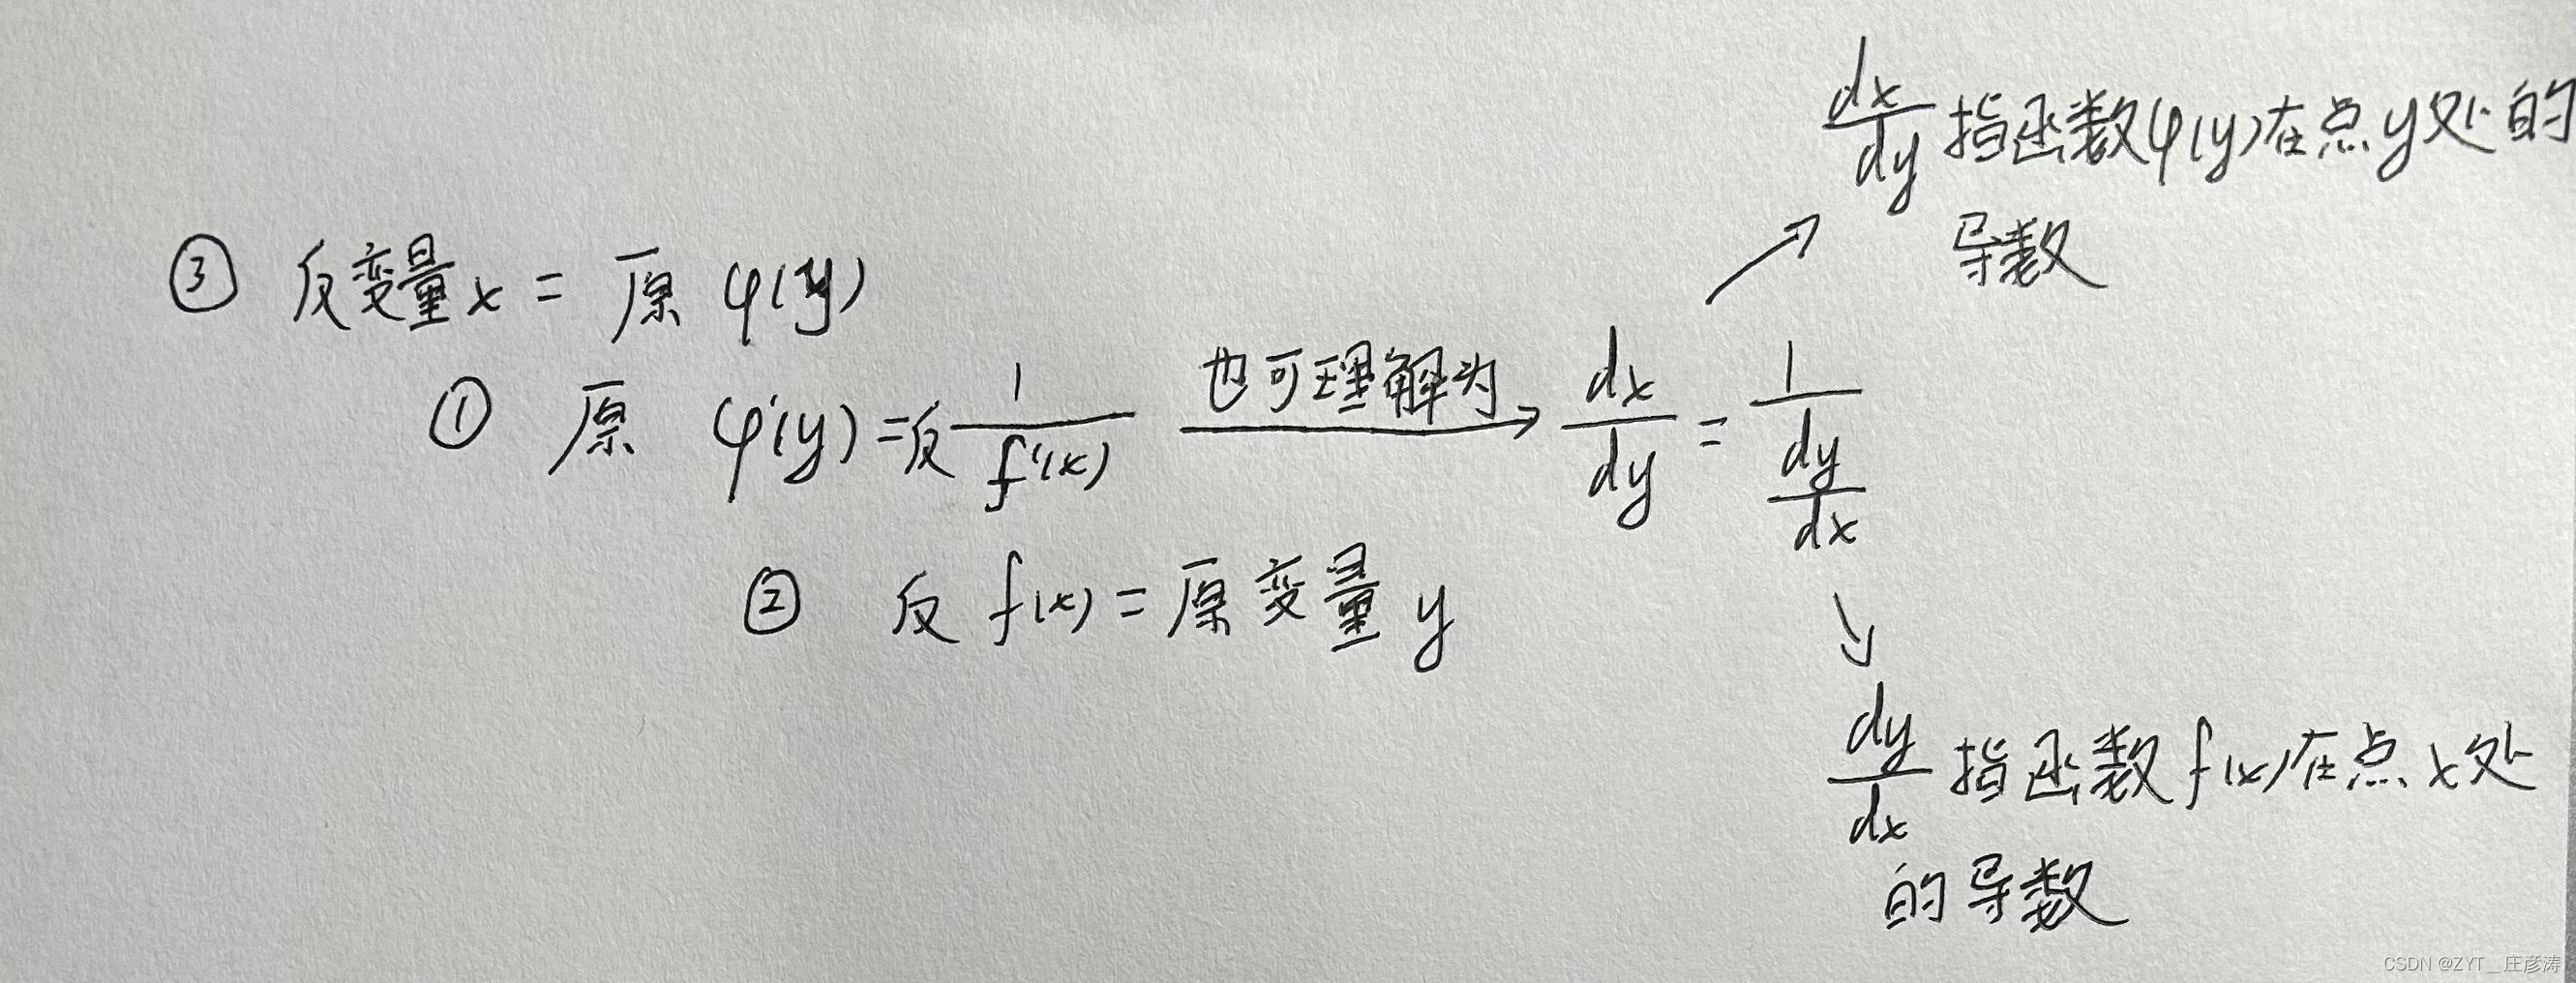 dx/dy 指函数φ(y)在点y处的
导数
③ 反变量x = 原 φ(y)
① 原 φ'(y) = 反 1/f'(x) 也可理解为 → dx/dy = 1/(dy/dx)
② 反 f(x) = 原变量 y
dy/dx 指函数f(x)在点x处
的导数
CSDN @ZYT__庄彦涛